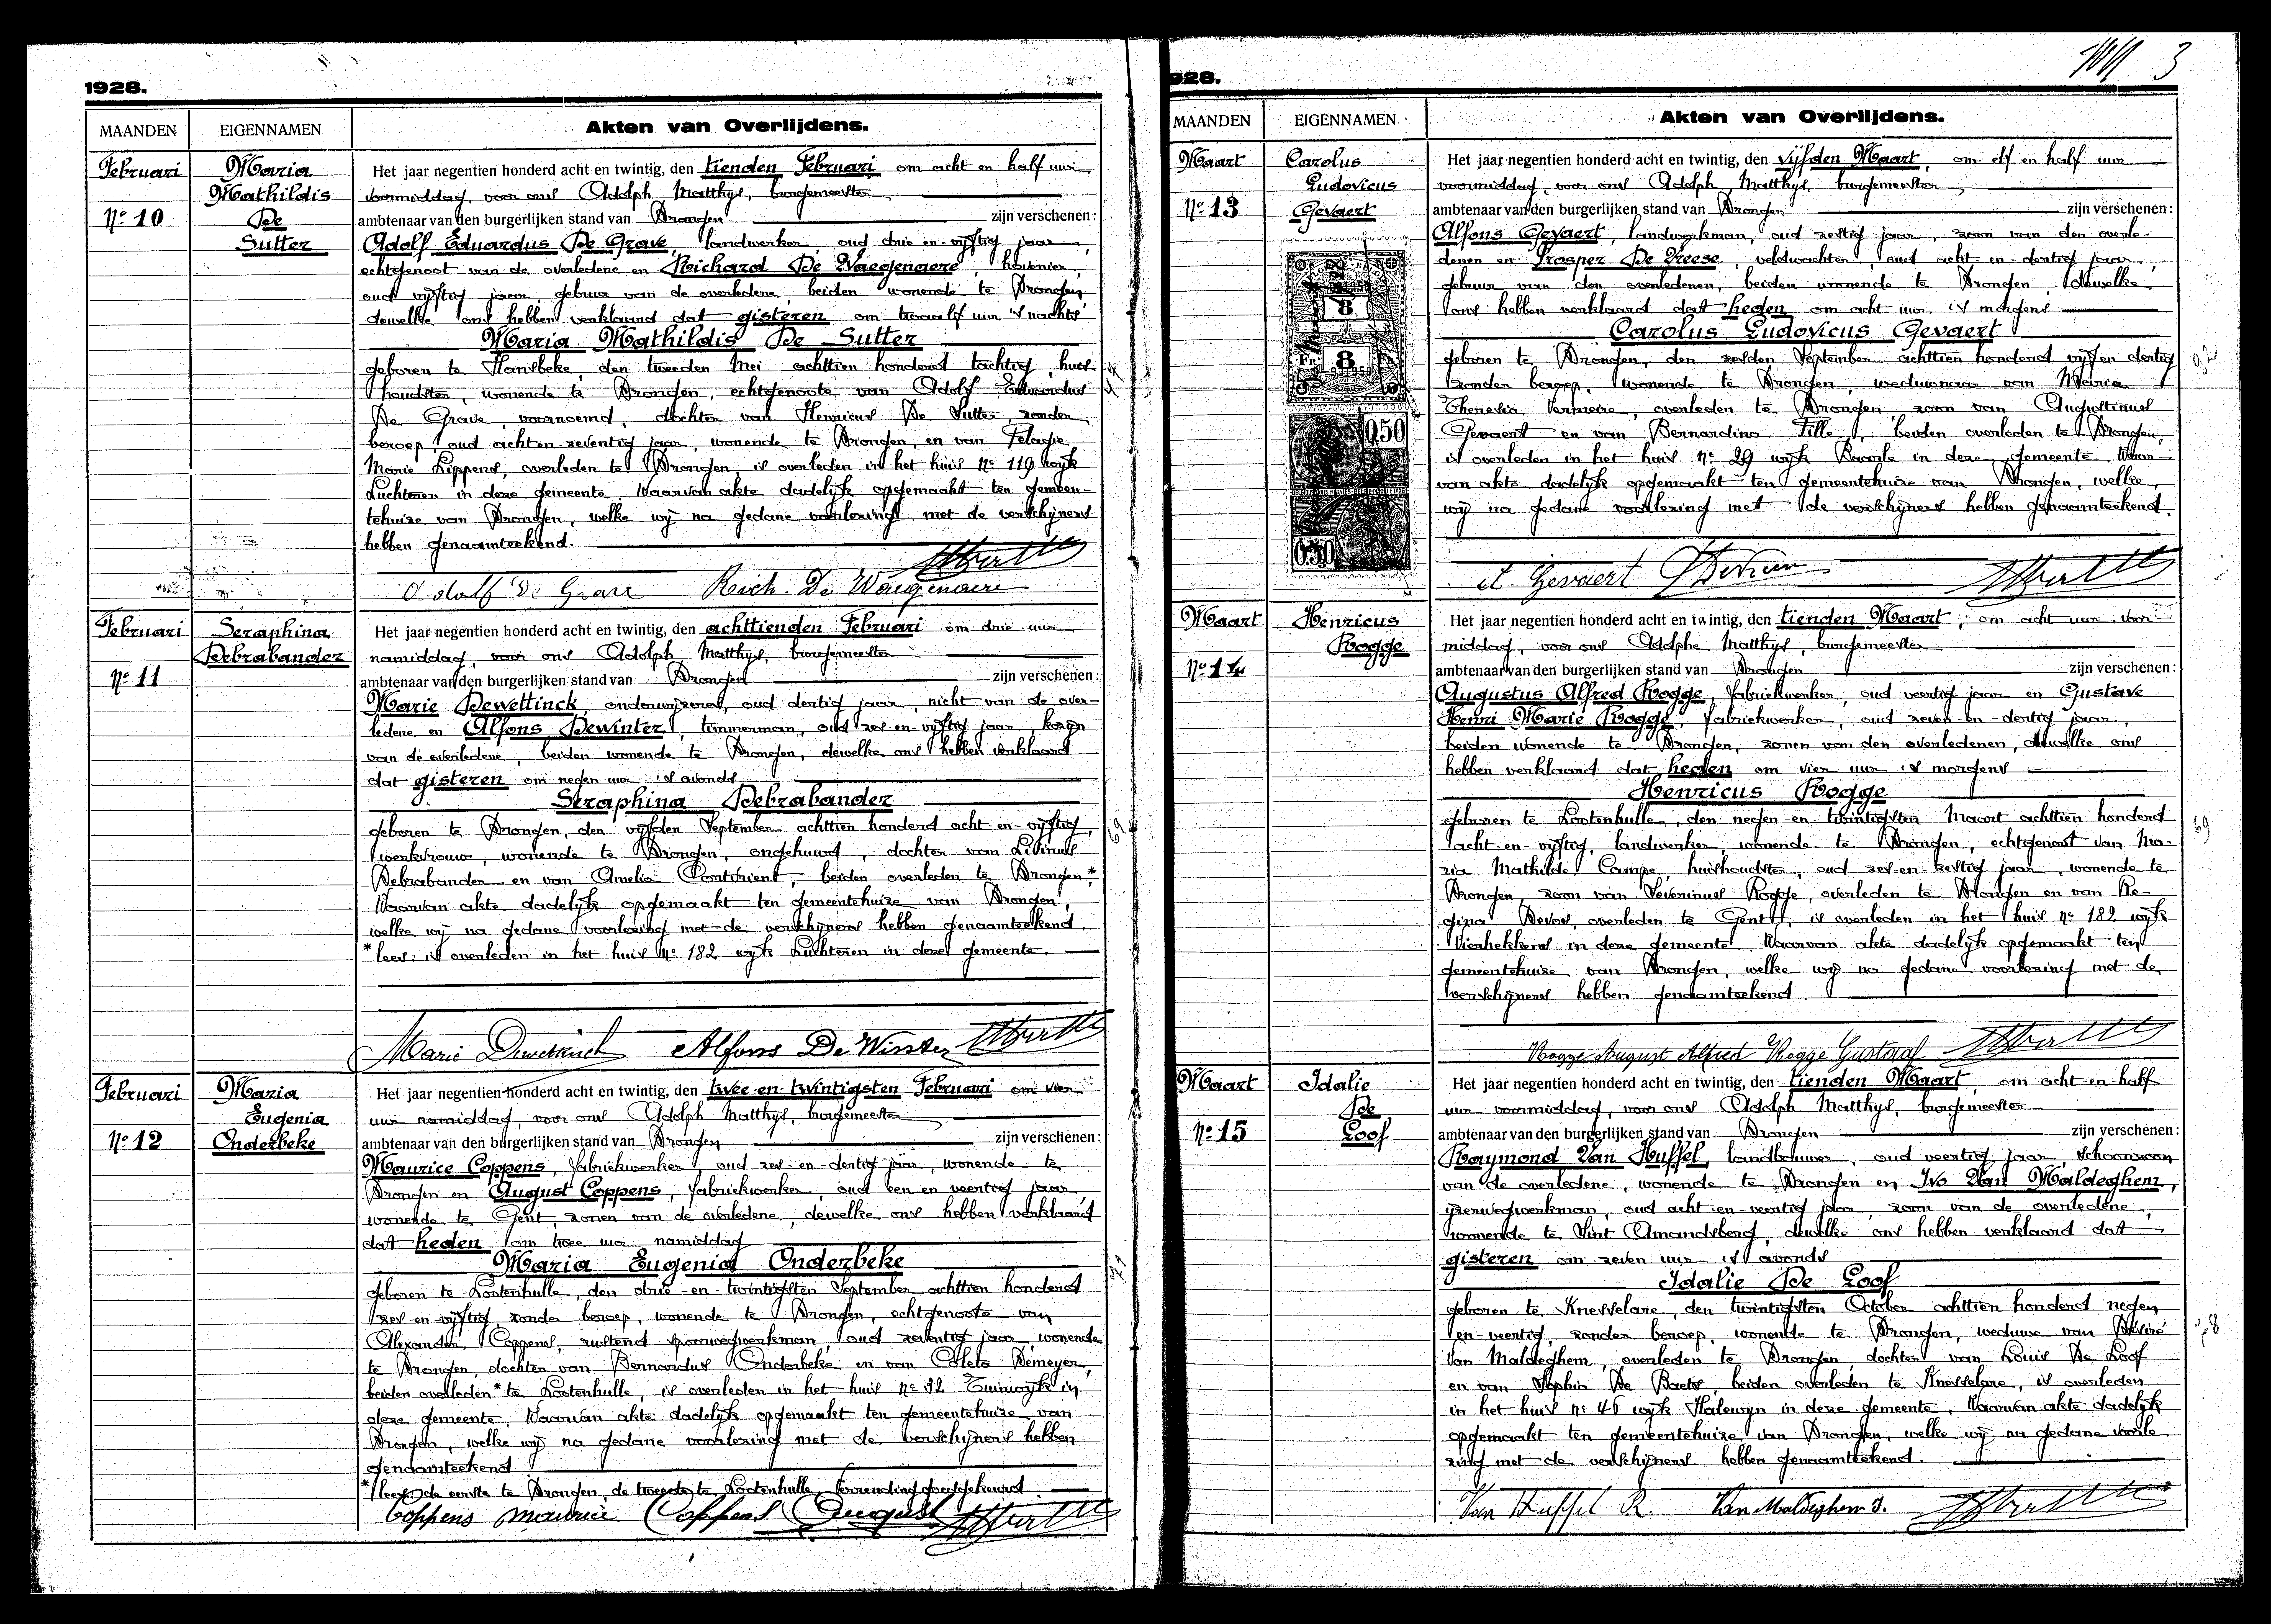 1928.
MAANDEN
EIGENNAMEN
Akten van Overlijdens.
Februari
Nº 10
Maria
Mathildis
De
Sutter
Het jaar negentien honderd acht en twintig, den tienden Februari om acht en half uur
voormiddag, voor ons Adolph Matthys, burgemeester
ambtenaar van den burgerlijken stand van Drongen zijn verschenen:
Adolf Eduardus De Grave, landwerker, oud drie-en-vijftig jaar,
echtgenoot van de overledene en Richard De Waegenaere, hovenier,
oud vijftig jaar, gebuur van de overledene, beiden wonende te Drongen,
dewelke ons hebben verklaard dat gisteren om twaalf uur 's nachts
Maria Mathildis De Sutter
geboren te Hansbeke, den tweeden Mei achttien honderd tachtig, huis-
houdster, wonende te Drongen, echtgenoote van Adolf Eduardus
De Grave, voornoemd, dochter van Henricus De Sutter, zonder
beroep, oud acht-en-zeventig jaar, wonende te Drongen, en van Pelagie
Marie Lippens, overleden te Drongen, is overleden in het huis Nº 119 wijk
Luchteren in deze gemeente. Waarvan akte dadelijk opgemaakt ten gemeen-
tehuize van Drongen, welke wij na gedane voorlezing met de verschijners
hebben genaamteekend.
Adolf De Grave Reich. De Waegenaere
47
Februari
Nº 11
Seraphina
Debrabander
Het jaar negentien honderd acht en twintig, den achttienden Februari om drie uur
namiddag, voor ons Adolph Matthys, burgemeester
ambtenaar van den burgerlijken stand van Drongen zijn verschenen:
Marie Dewettinck, onderwijzeres, oud dertig jaar, nicht van de over-
ledene en Alfons Dewinter, timmerman, oud zes-en-vijftig jaar, kozijn
van de overledene, beiden wonende te Drongen, dewelke ons hebben verklaard
dat gisteren om negen uur 's avonds
Seraphina Debrabander
geboren te Drongen, den vijfden September achttien honderd acht-en-vijftig,
werkvrouw, wonende te Drongen, ongehuwd, dochter van Livinus
Debrabander en van Amelia beiden overleden te Drongen.*
Waarvan akte dadelijk opgemaakt ten gemeentehuize van Drongen,
welke wij na gedane voorlezing met de verschijners hebben genaamteekend.
* lees: is overleden in het huis Nº 182 wijk Luchteren in deze gemeente.
Marie Dewettinck Alfons De Winter
69
Februari
Nº 12
Maria
Eugenia
Onderbeke
Het jaar negentien honderd acht en twintig, den twee-en-twintigsten Februari om vier
uur namiddag, voor ons Adolph Matthys, burgemeester
ambtenaar van den burgerlijken stand van Drongen zijn verschenen:
Maurice Coppens, fabriekwerker, oud zes-en-dertig jaar, wonende te
Drongen en August Coppens, fabriekwerker, oud een en veertig jaar,
wonende te Gent, zonen van de overledene, dewelke ons hebben verklaard
dat heden om twee uur namiddag
Maria Eugenia Onderbeke
geboren te Lootenhulle, den drie-en-twintigsten September achttien honderd
zes-en-vijftig, zonder beroep, wonende te Drongen, echtgenoote van
Alexander Coppens, rustend spoorwegwerkman, oud zeventig jaar, wonende
te Drongen, dochter van Bernardus Onderbeke en van Coleta Demeyer,
beiden overleden* te Lootenhulle, is overleden in het huis nº 32 Tuinwijk in
deze gemeente. Waarvan akte dadelijk opgemaakt ten gemeentehuize van
Drongen, welke wij na gedane voorlezing met de verschijners hebben
genaamteekend
* lees de eerste te Drongen, de tweede te Lootenhulle, verzending goedgekeurd.
Coppens Maurice Coppens August
71
928.
3
MAANDEN
EIGENNAMEN
Akten van Overlijdens.
Maart
Nº 13
Carolus
Ludovicus
Gevaert
8
FR 8 FR
0.50
0.50
Het jaar negentien honderd acht en twintig, den vijfden Maart, om elf en half uur
voormiddag, voor ons Adolph Matthys, burgemeester,
ambtenaar van den burgerlijken stand van Drongen zijn verschenen:
Alfons Gevaert, landwerkman, oud zestig jaar, zoon van den overle-
denen en Prosper De Vreese, veldwachter, oud acht-en-dertig jaar,
gebuur van den overledenen, beiden wonende te Drongen, dewelke
ons hebben verklaard dat heden om acht uur 's morgens
Carolus Ludovicus Gevaert
geboren te Drongen, den zesden September achttien honderd vijf en dertig
zonder beroep, wonende te Drongen, weduwnaar van Maria
Theresia Vermeire, overleden te Drongen, zoon van Augustinus
Gevaert en van Bernardina Tille, beiden overleden te Drongen,
is overleden in het huis Nº 29 wijk Baarle in deze gemeente. Waar-
van akte dadelijk opgemaakt ten gemeentehuize van Drongen, welke
wij na gedane voorlezing met de verschijners hebben genaamteekend.
A Gevaert
92
Maart
Nº 14
Henricus
Rogge
Het jaar negentien honderd acht en twintig, den tienden Maart, om acht uur voor-
middag, voor ons Adolphe Matthys, burgemeester
ambtenaar van den burgerlijken stand van Drongen zijn verschenen:
Augustus Alfred Rogge, fabriekwerker, oud veertig jaar en Gustave
Henri Marie Rogge, fabriekwerker, oud zeven-en-dertig jaar,
beiden wonende te Drongen, zonen van den overledenen, dewelke ons
hebben verklaard dat heden om vier uur 's morgens
Henricus Rogge
geboren te Lootenhulle, den negen-en-twintigsten Maart achttien honderd
acht-en-vijftig, landwerker, wonende te Drongen, echtgenoot van Ma-
ria Mathilde Campe, huishoudster, oud zes-en-zestig jaar, wonende te
Drongen, zoon van Severinus Rogge, overleden te Drongen en van Re-
gina Devos, overleden te Gent, is overleden in het huis nº 182 wijk
Vierhekkens in deze gemeente. Waarvan akte dadelijk opgemaakt ten
gemeentehuize van Drongen, welke wij na gedane voorlezing met de
verschijners hebben genaamteekend.
Rogge August Alfred Rogge Gustaaf
69
Maart
Nº 15
Idalie
De
Loof
Het jaar negentien honderd acht en twintig, den tienden Maart, om acht-en-half
uur voormiddag, voor ons Adolph Matthys, burgemeester
ambtenaar van den burgerlijken stand van Drongen zijn verschenen:
Raymond Van Huffel, landbouwer, oud veertig jaar, schoonzoon
van de overledene, wonende te Drongen en Ivo Van Maldeghem,
ijzerwegwerkman, oud acht-en-veertig jaar, zoon van de overledene,
wonende te Sint Amandsberg, dewelke ons hebben verklaard dat
gisteren om zeven uur 's avonds
Idalie De Loof
geboren te Knesselare, den twintigsten October achttien honderd negen
en-veertig, zonder beroep, wonende te Drongen, weduwe van Désiré
Van Maldeghem, overleden te Drongen, dochter van Louis De Loof
en van Sophie De Baets, beiden overleden te Knesselare, is overleden
in het huis nº 46 wijk Halewyn in deze gemeente. Waarvan akte dadelijk
opgemaakt ten gemeentehuize van Drongen, welke wij na gedane voorle-
zing met de verschijners hebben genaamteekend.
Van Huffel R. Van Maldeghem I.